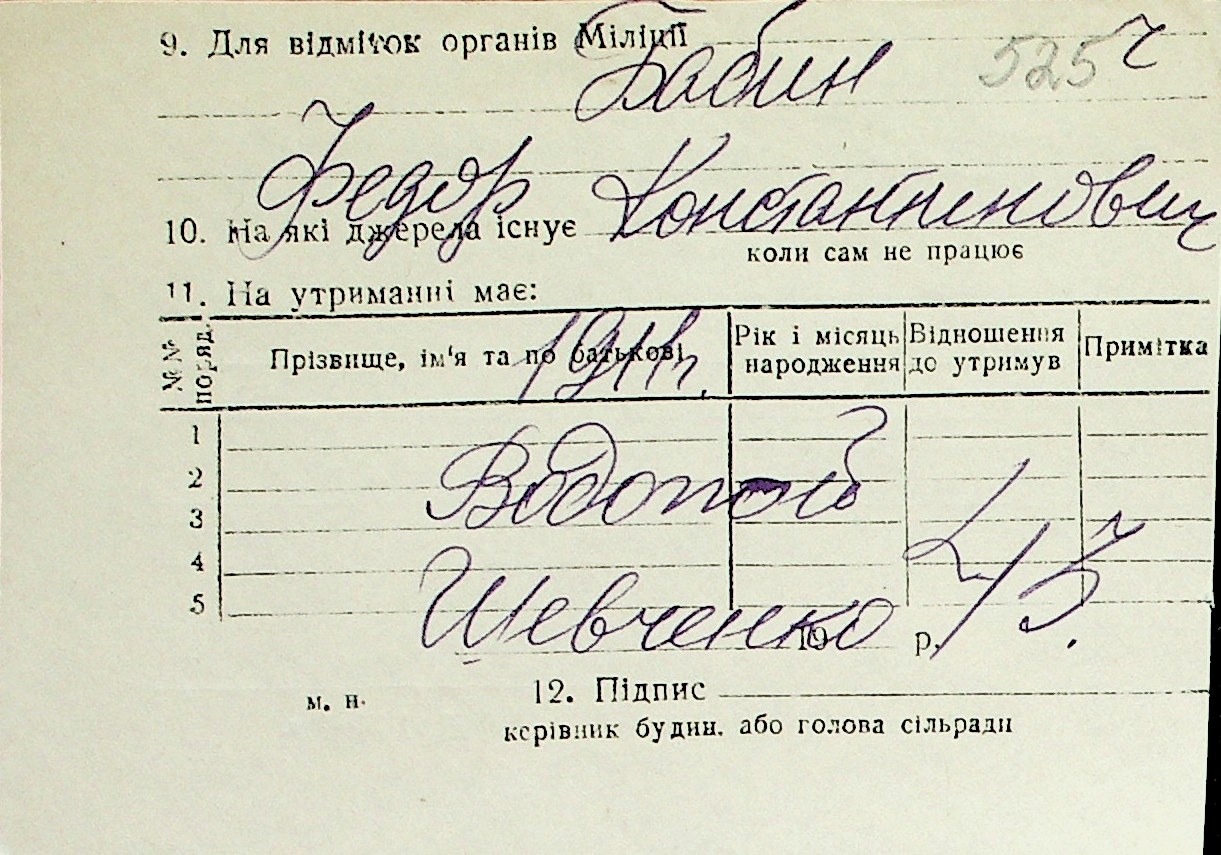 9. Для відміток органів Міліції
Бабин 525 ч
Федор Константинович
10. На які джерела існує
коли сам не працює
11. На утриманні має:
№№ поряд. Прізвище, ім'я та по батькові Рік і місяць народження Відношення до утримув Примітка
1911 г.
1
2 Водопой
3
4
5 Шевченко 43.
19 р.
м. н. 12. Підпис
керівник будин. або голова сільради